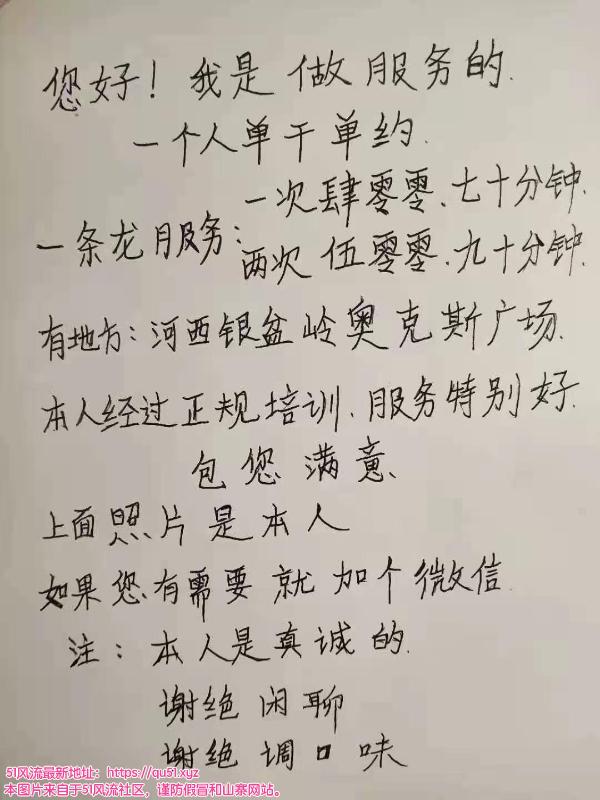 您好！我是做服务的.
一个人单干单约.
一条龙服务：一次肆零零.七十分钟.
两次伍零零.九十分钟.
有地方：河西银盆岭奥克斯广场.
本人经过正规培训.服务特别好.
包您满意.
上面照片是本人
如果您有需要就加个微信.
注：本人是真诚的.
谢绝闲聊
谢绝调口味
51风流最新地址：https://qu51.xyz
本图片来自于51风流社区，谨防假冒和山寨网站。